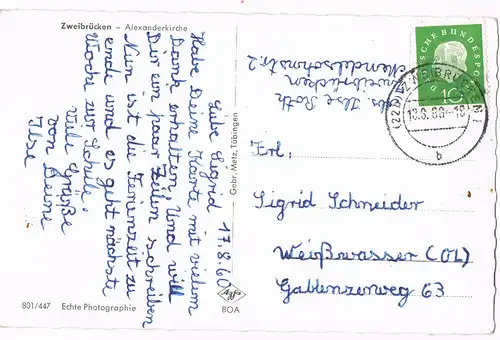 Zweibrücken – Alexanderkirche
17.8.60
Liebe Sigrid
Habe Deine Karte mit vielem
Dank erhalten. Und will
Dir ein paar Zeilen schreiben
Nun ist die Ferienzeit zu
ende und es geht nächste
Woche zur Schule.
Viele Grüße
von Deine
Ilse
801/447 Echte Photographie
Agfa
BOA
Gebr. Metz, Tübingen
Ilse Roth
Zweibrücken
Mendelssohnstr. 2
DEUTSCHE BUNDESPOST
10
(22b) ZWEIBRÜCKEN
18.8.60-18
b
Frl.
Sigrid Schneider
Weißwasser (OL)
Gablenzerweg 63